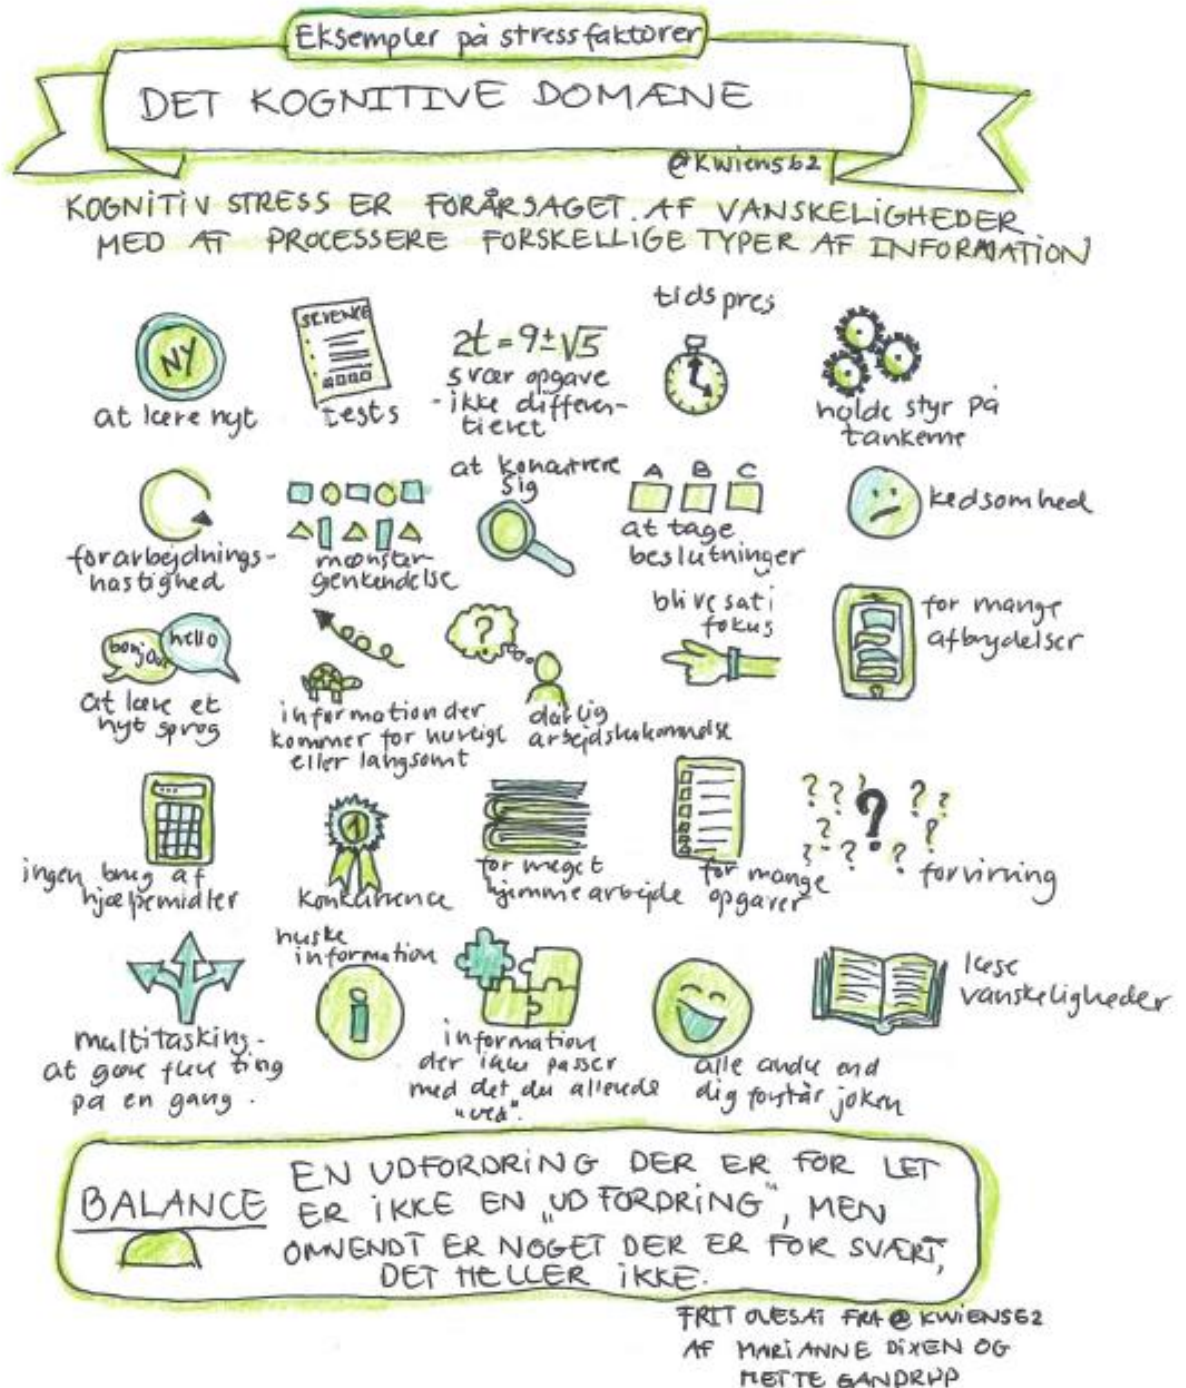 Eksempler på stressfaktorer
DET KOGNITIVE DOMÆNE
@Kwiens62
KOGNITIV STRESS ER FORÅRSAGET AF VANSKELIGHEDER
MED AT PROCESSERE FORSKELLIGE TYPER AF INFORMATION
NY
at lære nyt
SCIENCE
tests
2t = 9 ± √5
svær opgave
- ikke differen-
tieret
tidspres
holde styr på
tankerne
forarbejdnings-
hastighed
mønster-
genkendelse
at koncentrere
sig
A B C
at tage
beslutninger
kedsomhed
bonjour
hello
at lære et
nyt sprog
information der
kommer for hurtigt
eller langsomt
?
dårlig
arbejdshukommelse
blive sat i
fokus
for mange
afbrydelser
ingen brug af
hjælpemidler
1
konkurrence
for meget
hjemmearbejde
for mange
opgaver
? ? ? ? ? ? ? ? ? ?
forvirring
multitasking -
at gøre flere ting
på en gang.
huske
information
i
information
der ikke passer
med det du allerede
"ved".
alle andre end
dig forstår joken
læse
vanskeligheder
BALANCE
EN UDFORDRING DER ER FOR LET
ER IKKE EN „UDFORDRING", MEN
OMVENDT ER NOGET DER ER FOR SVÆRT,
DET HELLER IKKE.
FRIT OVERSAT FRA @KWIENS62
AF MARIANNE DIXEN OG
METTE GANDRUP